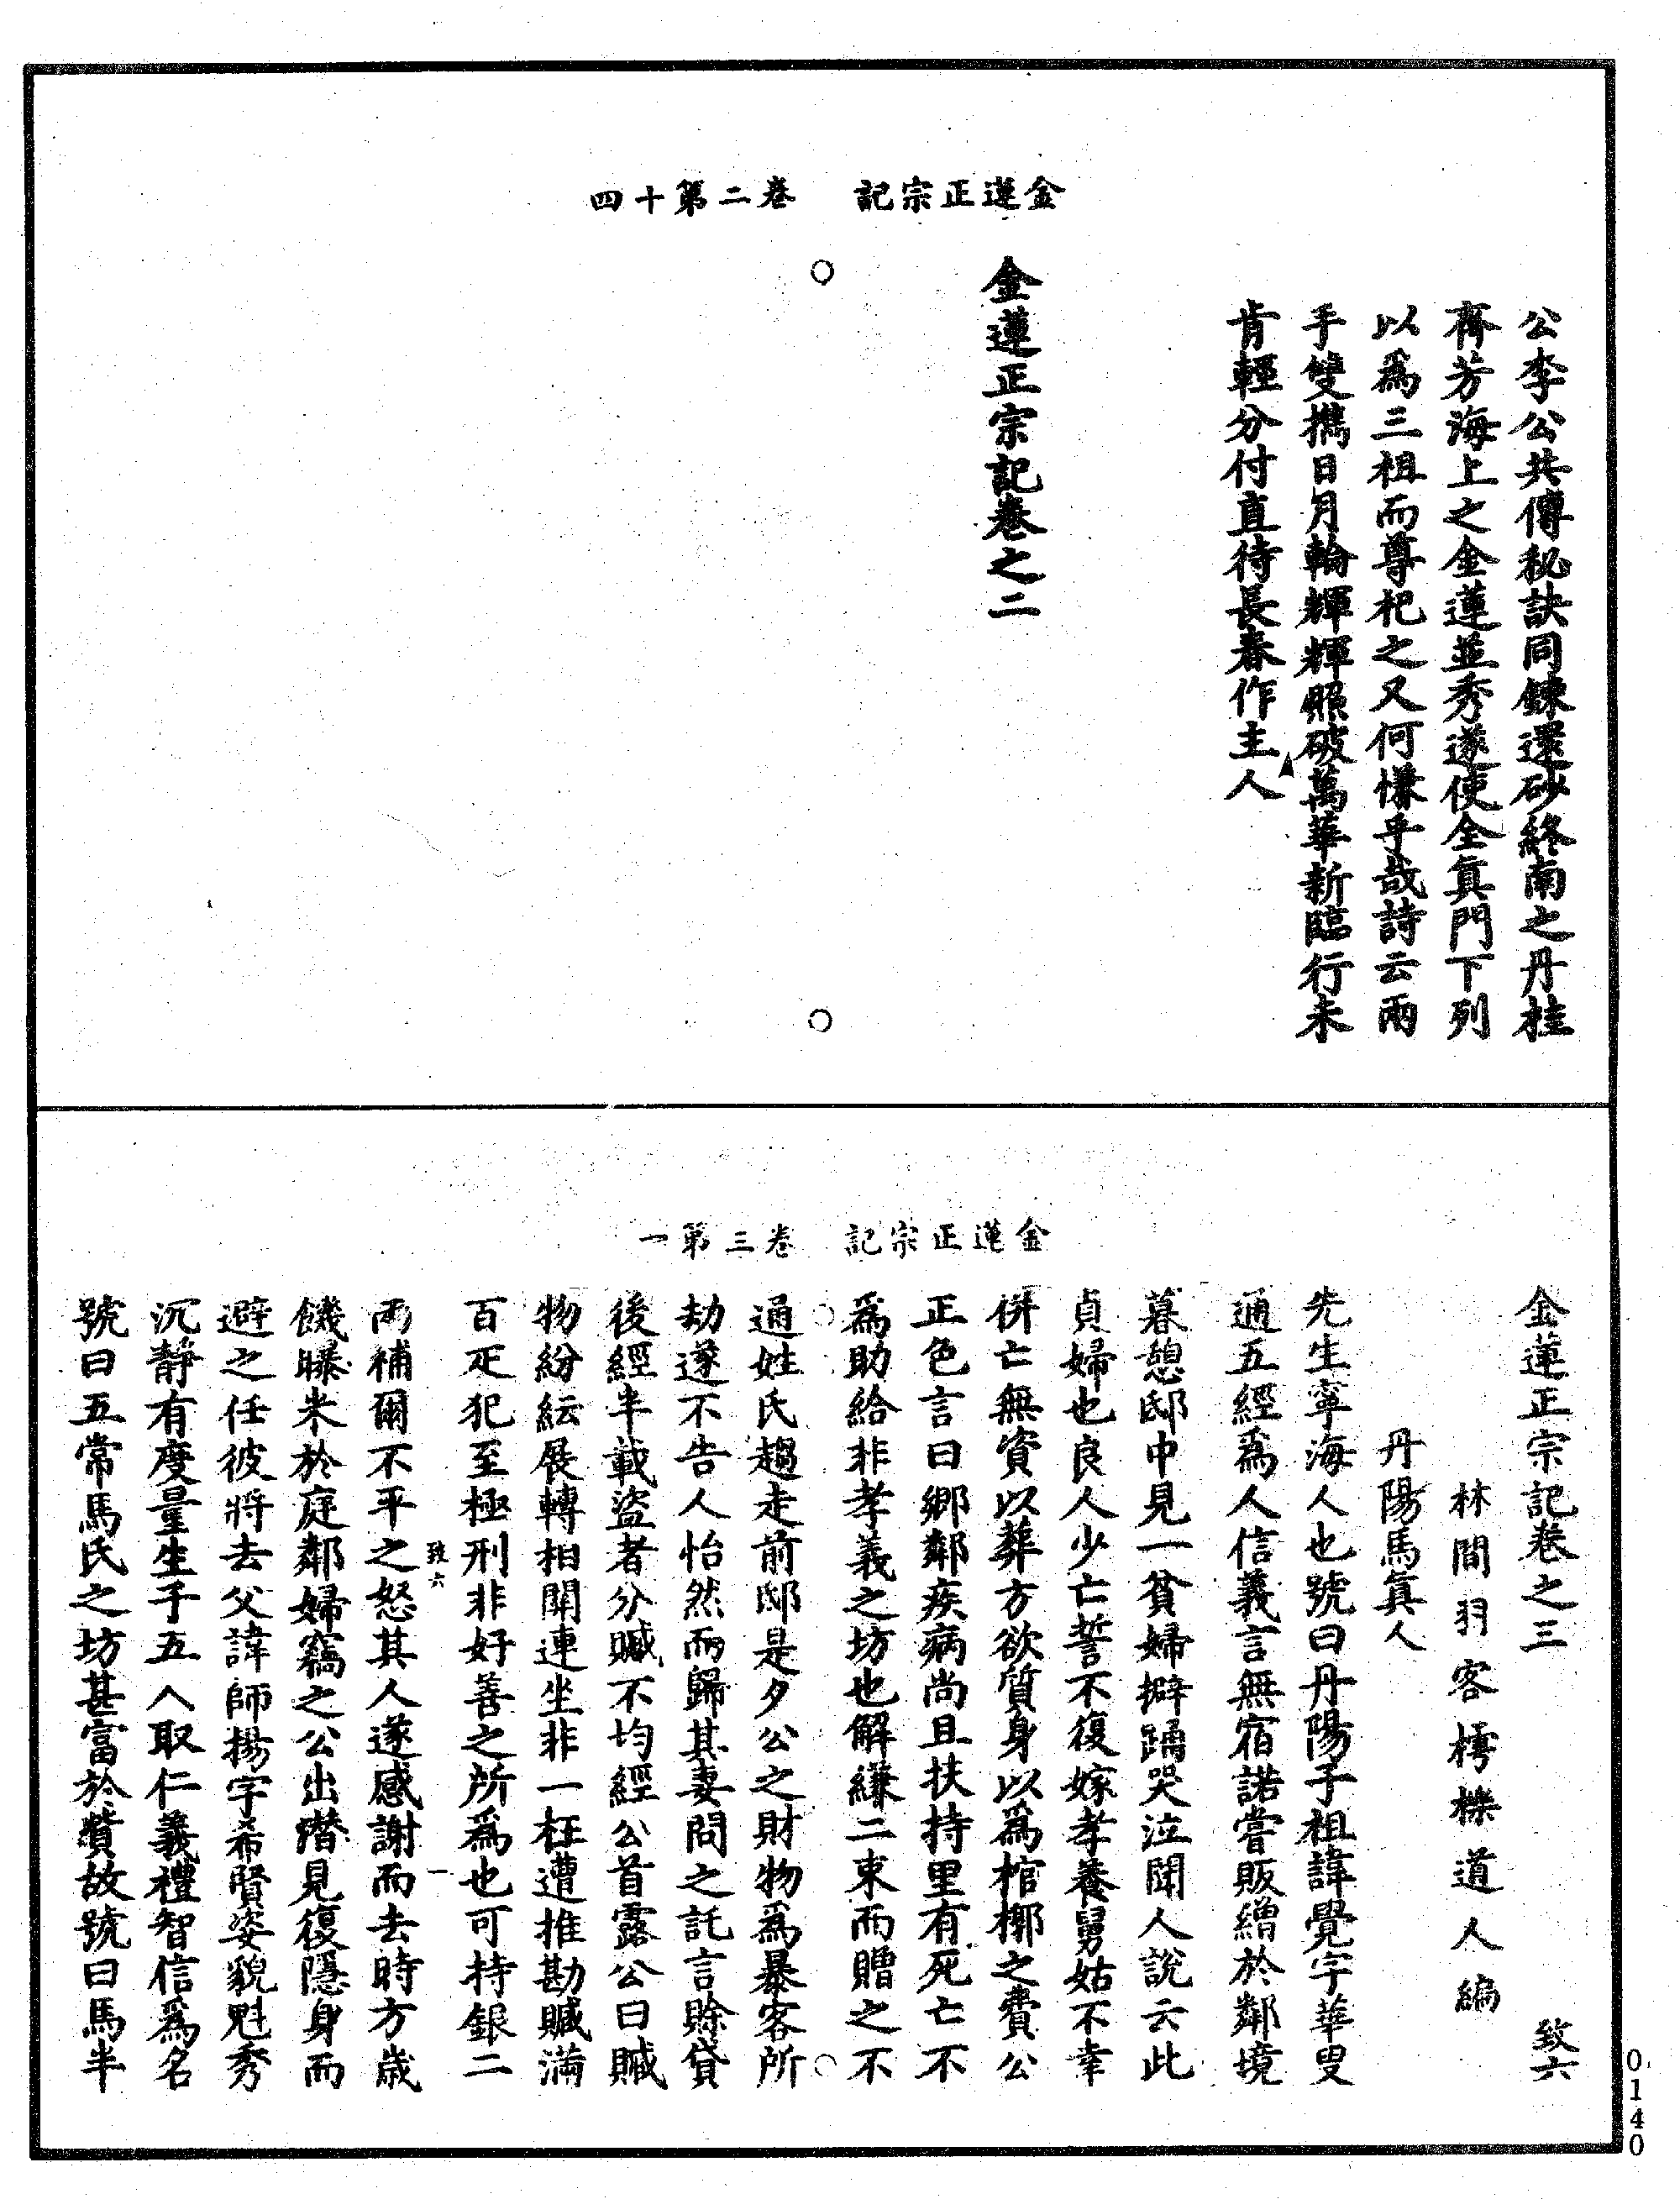 金蓮正宗記　卷二第十四
公李公共傳秘訣同鍊還砂終南之丹桂
齊芳海上之金蓮並秀遂使全眞門下列
以爲三祖而尊祀之又何慊乎哉詩云兩
手雙攜日月輪輝輝照破萬華新臨行未
肯輕分付直待長春作主人
金蓮正宗記卷之二
金蓮正宗記　卷三第一
金蓮正宗記卷之三　致六
林間羽客樗櫟道人編
丹陽馬眞人
先生寧海人也號曰丹陽子祖諱覺字華叟
通五經爲人信義言無宿諾嘗販繒於鄰境
暮憩邸中見一貧婦擗踊哭泣聞人說云此
貞婦也良人少亡誓不復嫁孝養舅姑不幸
併亡無資以葬方欲質身以爲棺槨之費公
正色言曰鄉鄰疾病尚且扶持里有死亡不
爲助給非孝義之坊也解縑二束而贈之不
通姓氏趨走前邸是夕公之財物爲暴客所
劫遂不告人怡然而歸其妻問之託言賒貸
後經半載盜者分贓不均經公首露公曰贓
物紛紜展轉相關連坐非一枉遭推勘贓滿
百疋犯至極刑非好善之所爲也可持銀二
致六　一
兩補爾不平之怒其人遂感謝而去時方歲
饑曝米於庭鄰婦竊之公出潛見復隱身而
避之任彼將去父諱師揚字希賢姿貌魁秀
沉靜有度量生子五人取仁義禮智信爲名
號曰五常馬氏之坊甚富於貲故號曰馬半
0140